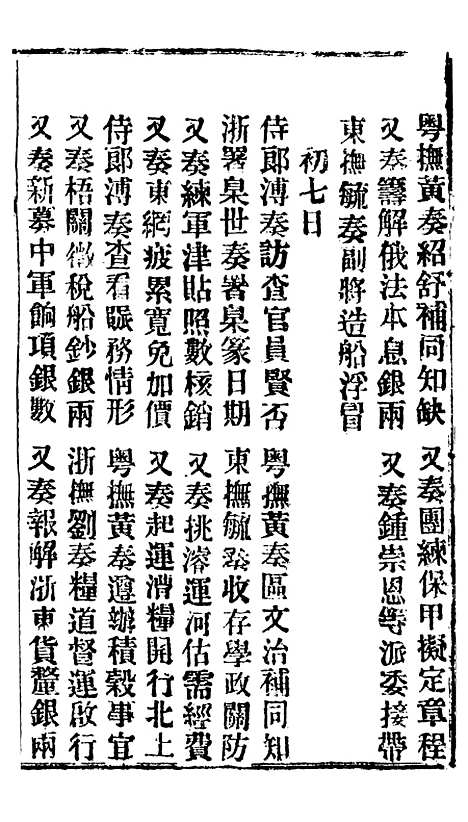 粵撫黃奏紹舒補同知缺 又奏團練保甲擬定章程
又奏籌解俄法本息銀兩 又奏鍾崇恩等派委接帶
東撫毓奏副將造船浮冒
初七日
侍郎溥奏訪查官員賢否 粵撫黃奏區文治補同知
浙署臬世奏署臬篆日期 東撫毓奏收存學政關防
又奏練軍津貼照數核銷 又奏挑濬運河估需經費
又奏東網疲累寬免加價 又奏起運漕糧開行北上
侍郎溥奏查看賑務情形 粵撫黃奏遵辦積穀事宜
又奏梧關徵稅船鈔銀兩 浙撫劉奏糧道督運啟行
又奏新募中軍餉項銀數 又奏報解浙東貨釐銀兩